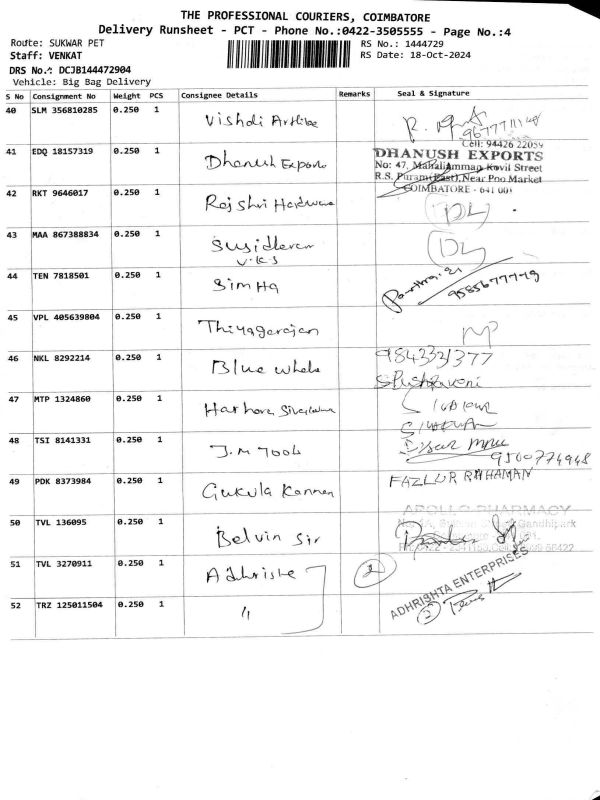 THE PROFESSIONAL COURIERS, COIMBATORE
Delivery Runsheet - PCT - Phone No.:0422-3505555 - Page No.:4
Route: SUKWAR PET
RS No.: 1444729
Staff: VENKAT
RS Date: 18-Oct-2024
DRS No.: DCJB144472904
Vehicle: Big Bag Delivery
S No Consignment No Weight PCS Consignee Details Remarks Seal & Signature
40 SLM 356810285 0.250 1 Vishdi
41 EDQ 18157319 0.250 1 Dhanush Exports
Cell: 94426 22059
DHANUSH EXPORTS
No: 47, Mahaliamman Kovil Street
R.S. Puram (East), Near Poo Market
COIMBATORE - 641 001
42 RKT 9646017 0.250 1 Raj Shri Hardware DL
43 MAA 867388834 0.250 1 DL
44 TEN 7818501 0.250 1 Simha
45 VPL 405639804 0.250 1 Thiyagarajan
46 NKL 8292214 0.250 1 Blue Whale
47 MTP 1324860 0.250 1
48 TSI 8141331 0.250 1 J.M Tools
9500774948
49 PDK 8373984 0.250 1 Gukula Kannan FAZLUR RAHAMAN
50 TVL 136095 0.250 1 Belvin Sir
APOLLO PHARMACY
51 TVL 3270911 0.250 1 2
ADHRISHTA ENTERPRISES
52 TRZ 125011504 0.250 1 " 2